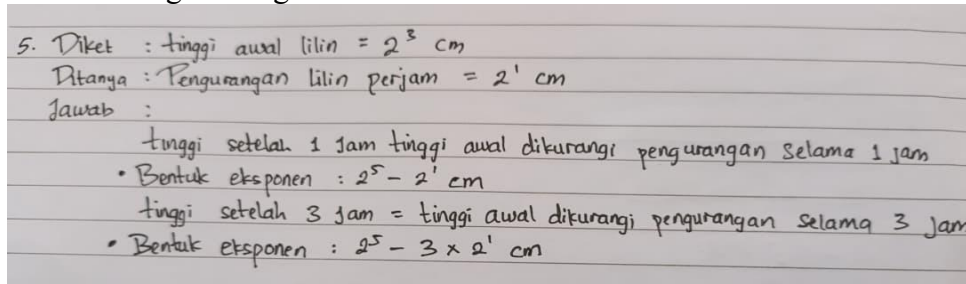 5. Diket : tinggi awal lilin = 2³ cm
Ditanya : Pengurangan lilin perjam = 2¹ cm
Jawab :
tinggi setelah 1 Jam tinggi awal dikurangi pengurangan selama 1 jam
• Bentuk eksponen : 2⁵ - 2¹ cm
tinggi setelah 3 Jam = tinggi awal dikurangi pengurangan selama 3 Jam
• Bentuk eksponen : 2⁵ - 3 × 2¹ cm